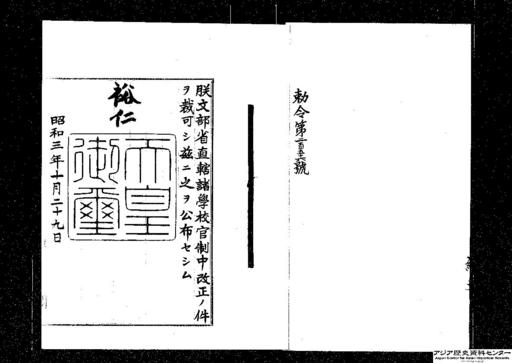 朕文部省直轄諸學校官制中改正ノ件
ヲ裁可シ茲ニ之ヲ公布セシム
裕仁
天皇
御璽
昭和三年十月二十九日
アジア歴史資料センター
Japan Center for Asian Historical Records